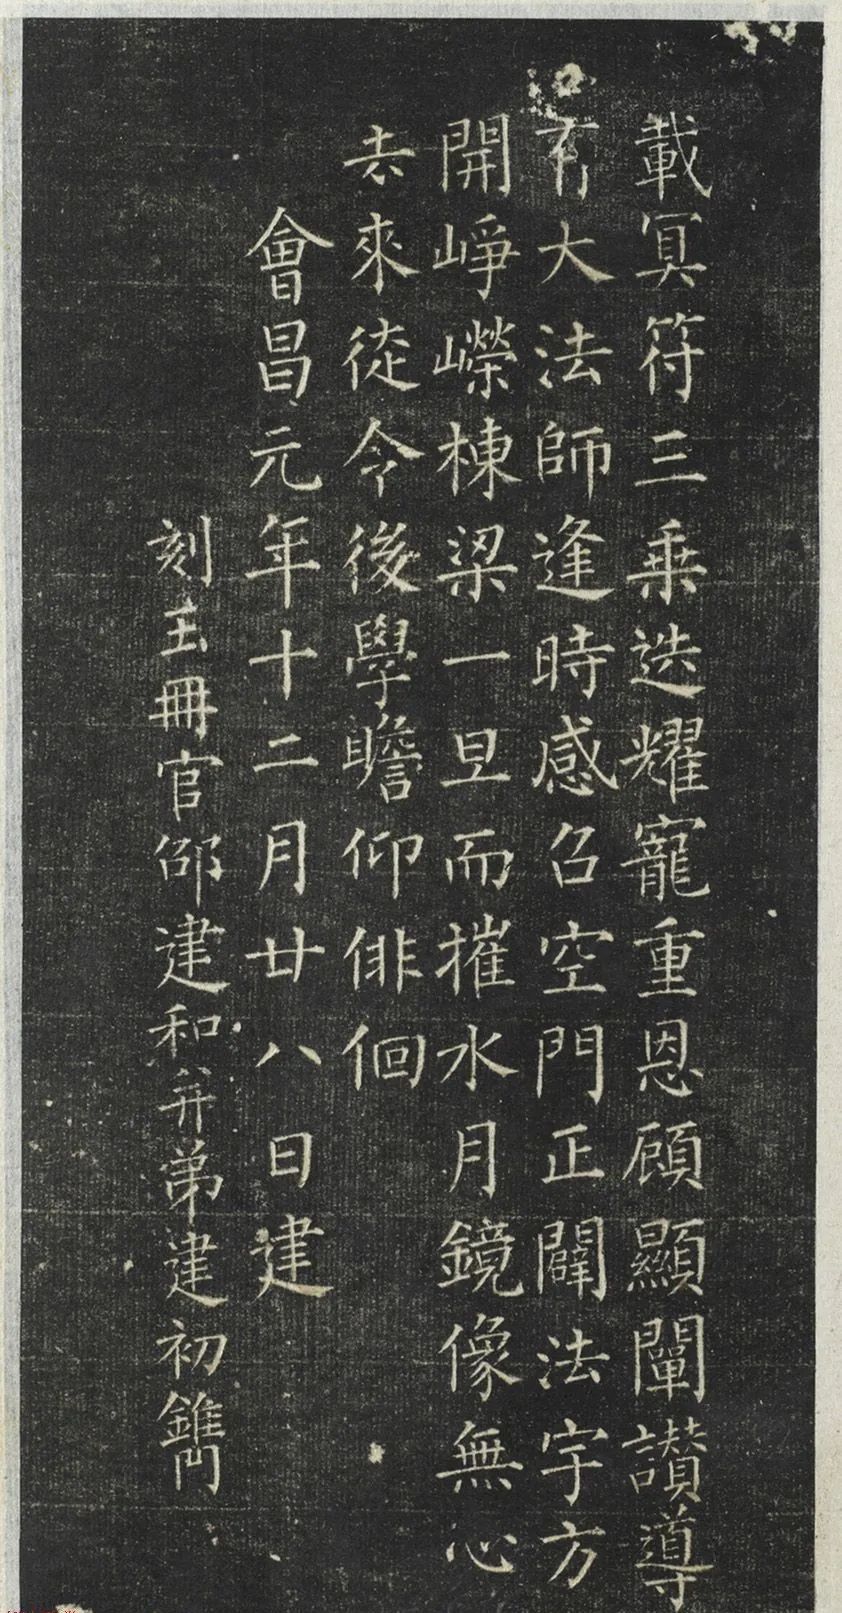 載冥符三乗迭耀寵重恩顧顯闡讃導
有大法師逢時感召空門正闢法宇方
開崢嶸棟梁一旦而摧水月鏡像無心
去來徒令後學瞻仰俳佪
會昌元年十二月廿八日建
刻玉冊官邵建和并弟建初鐫